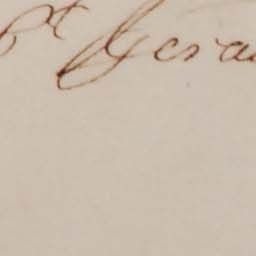 St Gera